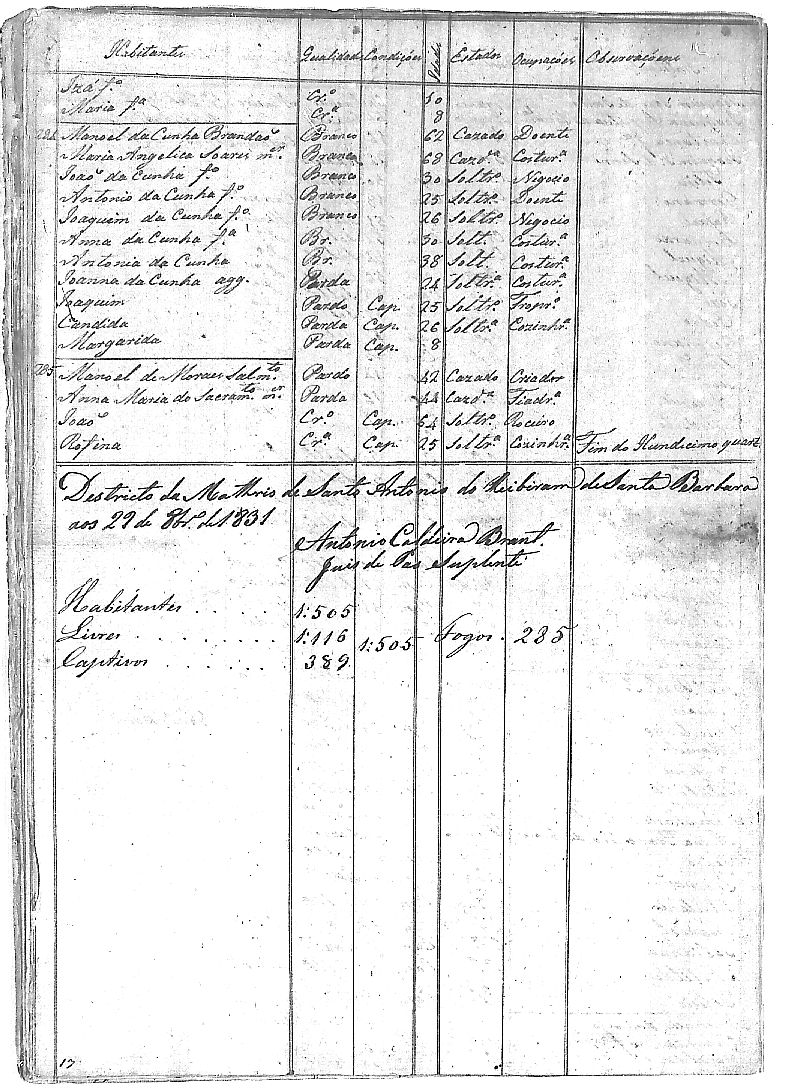 Habitantes Qualidades Condições Idades Estados Ocupações Observaçoens
Izá fº Crº 10
Maria fª Crª 8
284 Manoel da Cunha Brandaõ Branco 62 Cazado Doente
Maria Angelica Soares mer Branca 68 Cazdª Costurª
Joaõ da Cunha fº Branco 30 Soltrº Negocio
Antonio da Cunha fº Branco 25 Soltrº Doente
Joaquim da Cunha fº Branco 26 Soltrº Negocio
Anna da Cunha fª Br. 30 Solt. Costurª
Antonia da Cunha Br. 38 Solt. Costurª
Joanna da Cunha agg. Parda 24 Soltrª Costurª
Joaquim Pardo Cap. 25 Soltrº Troprº
Candida Parda Cap. 26 Soltrª Cozinhrª
Margarida Parda Cap. 8
285 Manoel de Moraes Salmto Pardo 42 Cazado Criador
Anna Maria do Sacramto mer Parda 44 Cazdª Fiadrª
Joaõ Crº Cap. 54 Soltrº Roceiro
Rofina Crª Cap. 25 Soltrª Cozinhrª Fim do Hundicimo quart.
Destricto da Mathris de Santo Antonio do Ribiram de Santa Barbara
aos 29 de 8brº de 1831
Antonio Caldeira Brant.
Juis de Pas Suplente
Habitantes . . . . 1:505
Livres . . . . . . . . 1:116 1:505 Fogos . 285
Captivos . . . . . . 389
17